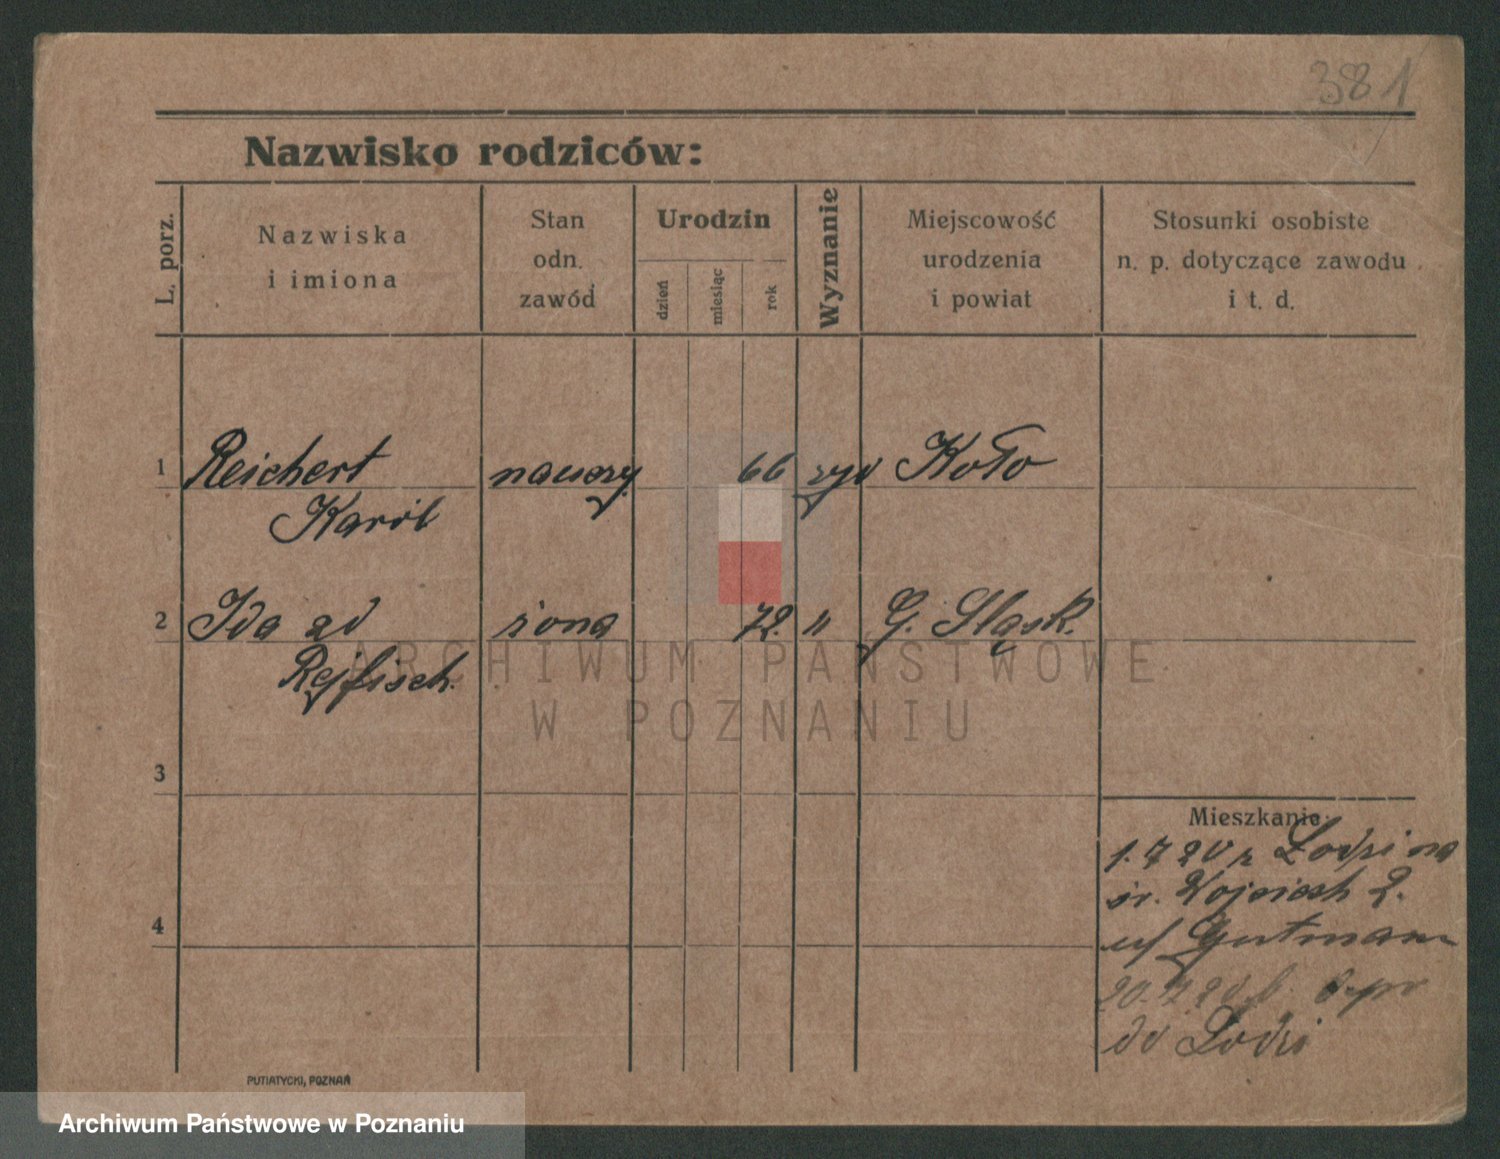 381
Nazwisko rodziców:
L. porz.
Nazwiska
i imiona
Stan
odn.
zawód
Urodzin
dzień
miesiąc
rok
Wyznanie
Miejscowość
urodzenia
i powiat
Stosunki osobiste
n. p. dotyczące zawodu
i t. d.
1 Reichert nauczy. 66 Koło
Karol
2 Ida zd żona 72. " G. Śląsk.
Rejfisch.
3
Mieszkanie:
1. 7 20 z Łodzi na
św. Wojciech 2.
u/ Gutmann
4
20. 7 20
do Łodzi
PUTIATYCKI, POZNAŃ
ARCHIWUM PAŃSTWOWE
W POZNANIU
Archiwum Państwowe w Poznaniu